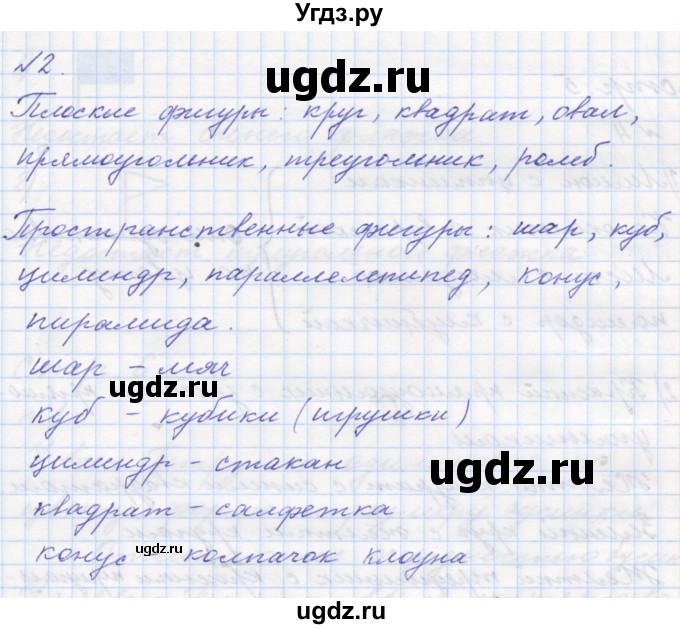 Угдз.ру
№2.
ugdz.ru
Плоские фигуры: круг, квадрат, овал,
прямоугольник, треугольник, ромб.
Пространственные фигуры: шар, куб,
ugdz.ru
цилиндр, параллелепипед, конус,
пирамида.
шар – мяч
ugdz.ru
куб – кубики (игрушки)
цилиндр – стакан
ugdz.ru
квадрат – салфетка
конус – колпачок клоуна
ugdz.ru
ugdz.ru